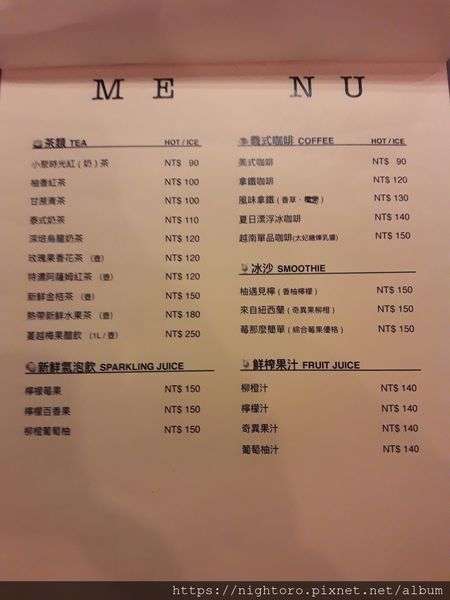 ME NU
茶類 TEA HOT / ICE
小泰時光紅（奶）茶 NT$ 90
柚香紅茶 NT$ 100
甘蔗青茶 NT$ 100
泰式奶茶 NT$ 110
深焙烏龍奶茶 NT$ 120
玫瑰果香花茶（壺） NT$ 120
特濃阿薩姆紅茶（壺） NT$ 120
新鮮金桔茶（壺） NT$ 150
熱帶新鮮水果茶（壺） NT$ 180
蔓越梅果醋飲（1L / 壺） NT$ 250
新鮮氣泡飲 SPARKLING JUICE
檸檬莓果 NT$ 150
檸檬百香果 NT$ 150
柳橙葡萄柚 NT$ 150
義式咖啡 COFFEE HOT / ICE
美式咖啡 NT$ 90
拿鐵咖啡 NT$ 120
風味拿鐵（香草． NT$ 130
夏日漂浮冰咖啡 NT$ 140
越南單品咖啡 NT$ 150
冰沙 SMOOTHIE
柚遇見檸（香柚檸檬） NT$ 150
來自紐西蘭（奇異果柳橙） NT$ 150
莓那麼簡單（綜合莓果優格） NT$ 150
鮮榨果汁 FRUIT JUICE
柳橙汁 NT$ 140
檸檬汁 NT$ 140
奇異果汁 NT$ 140
葡萄柚汁 NT$ 140
https://nightoro.pixnet.net/album